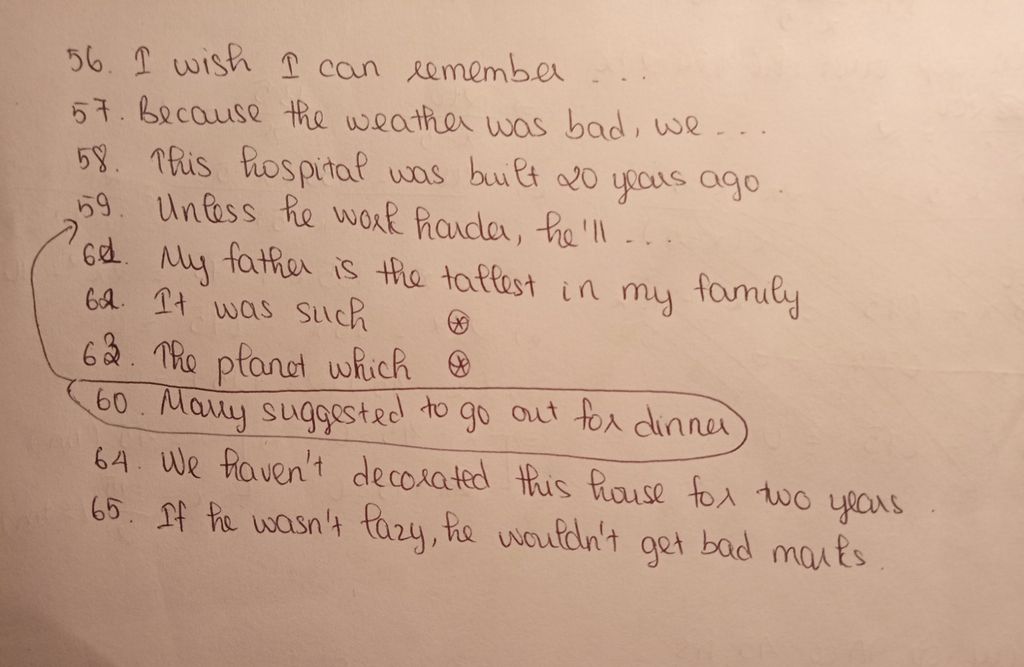 56. I wish I can remember ...
57. Because the weather was bad, we ...
58. This hospital was built 20 years ago.
59. Unless he work harder, he'll ...
61. My father is the tallest in my family
62. It was such
63. The planet which
60. Mary suggested to go out for dinner
64. We haven't decorated this house for two years.
65. If he wasn't lazy, he wouldn't get bad marks.